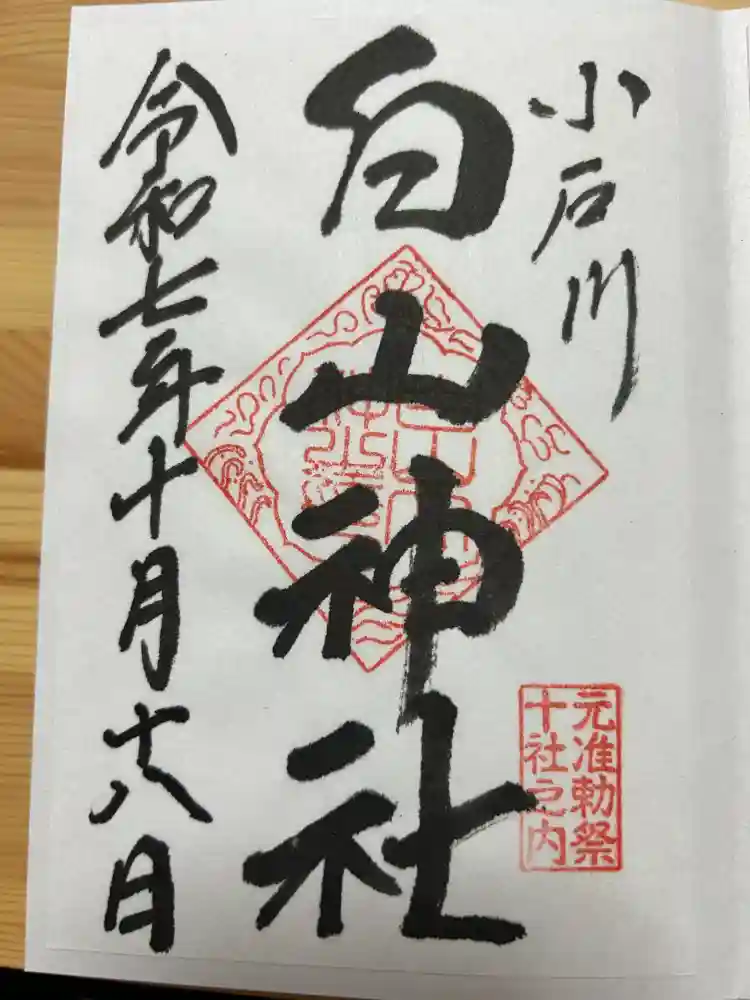 小石川
白山神社
令和七年十月十八日
元准勅祭
十社之内